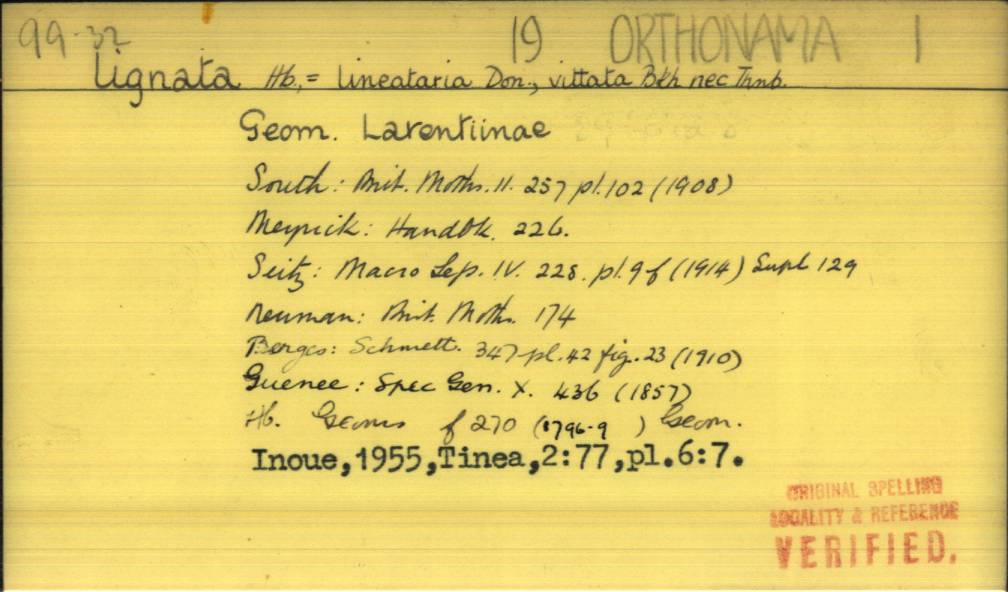 99-32 19 ORTHONAMA 1
lignata Hb., = lineataria Don., vittata Bkh nec Thnb.
Geom. Larentiinae
South: Brit. Moths. II. 257 pl. 102 (1908)
Meyrick: Handbk. 226.
Seitz: Macro Lep. IV. 228. pl. 9 f (1914) Supl 129
Neuman: Brit. Moths. 174
Berges: Schmett. 347 pl. 42 fig. 23 (1910)
Guenee: Spec Gen. X. 436 (1857)
Hb. Geoms f 270 (1796-9 ) Geom.
Inoue,1955,Tinea,2:77,pl.6:7.
ORIGINAL SPELLING
LOCALITY & REFERENCE
VERIFIED.